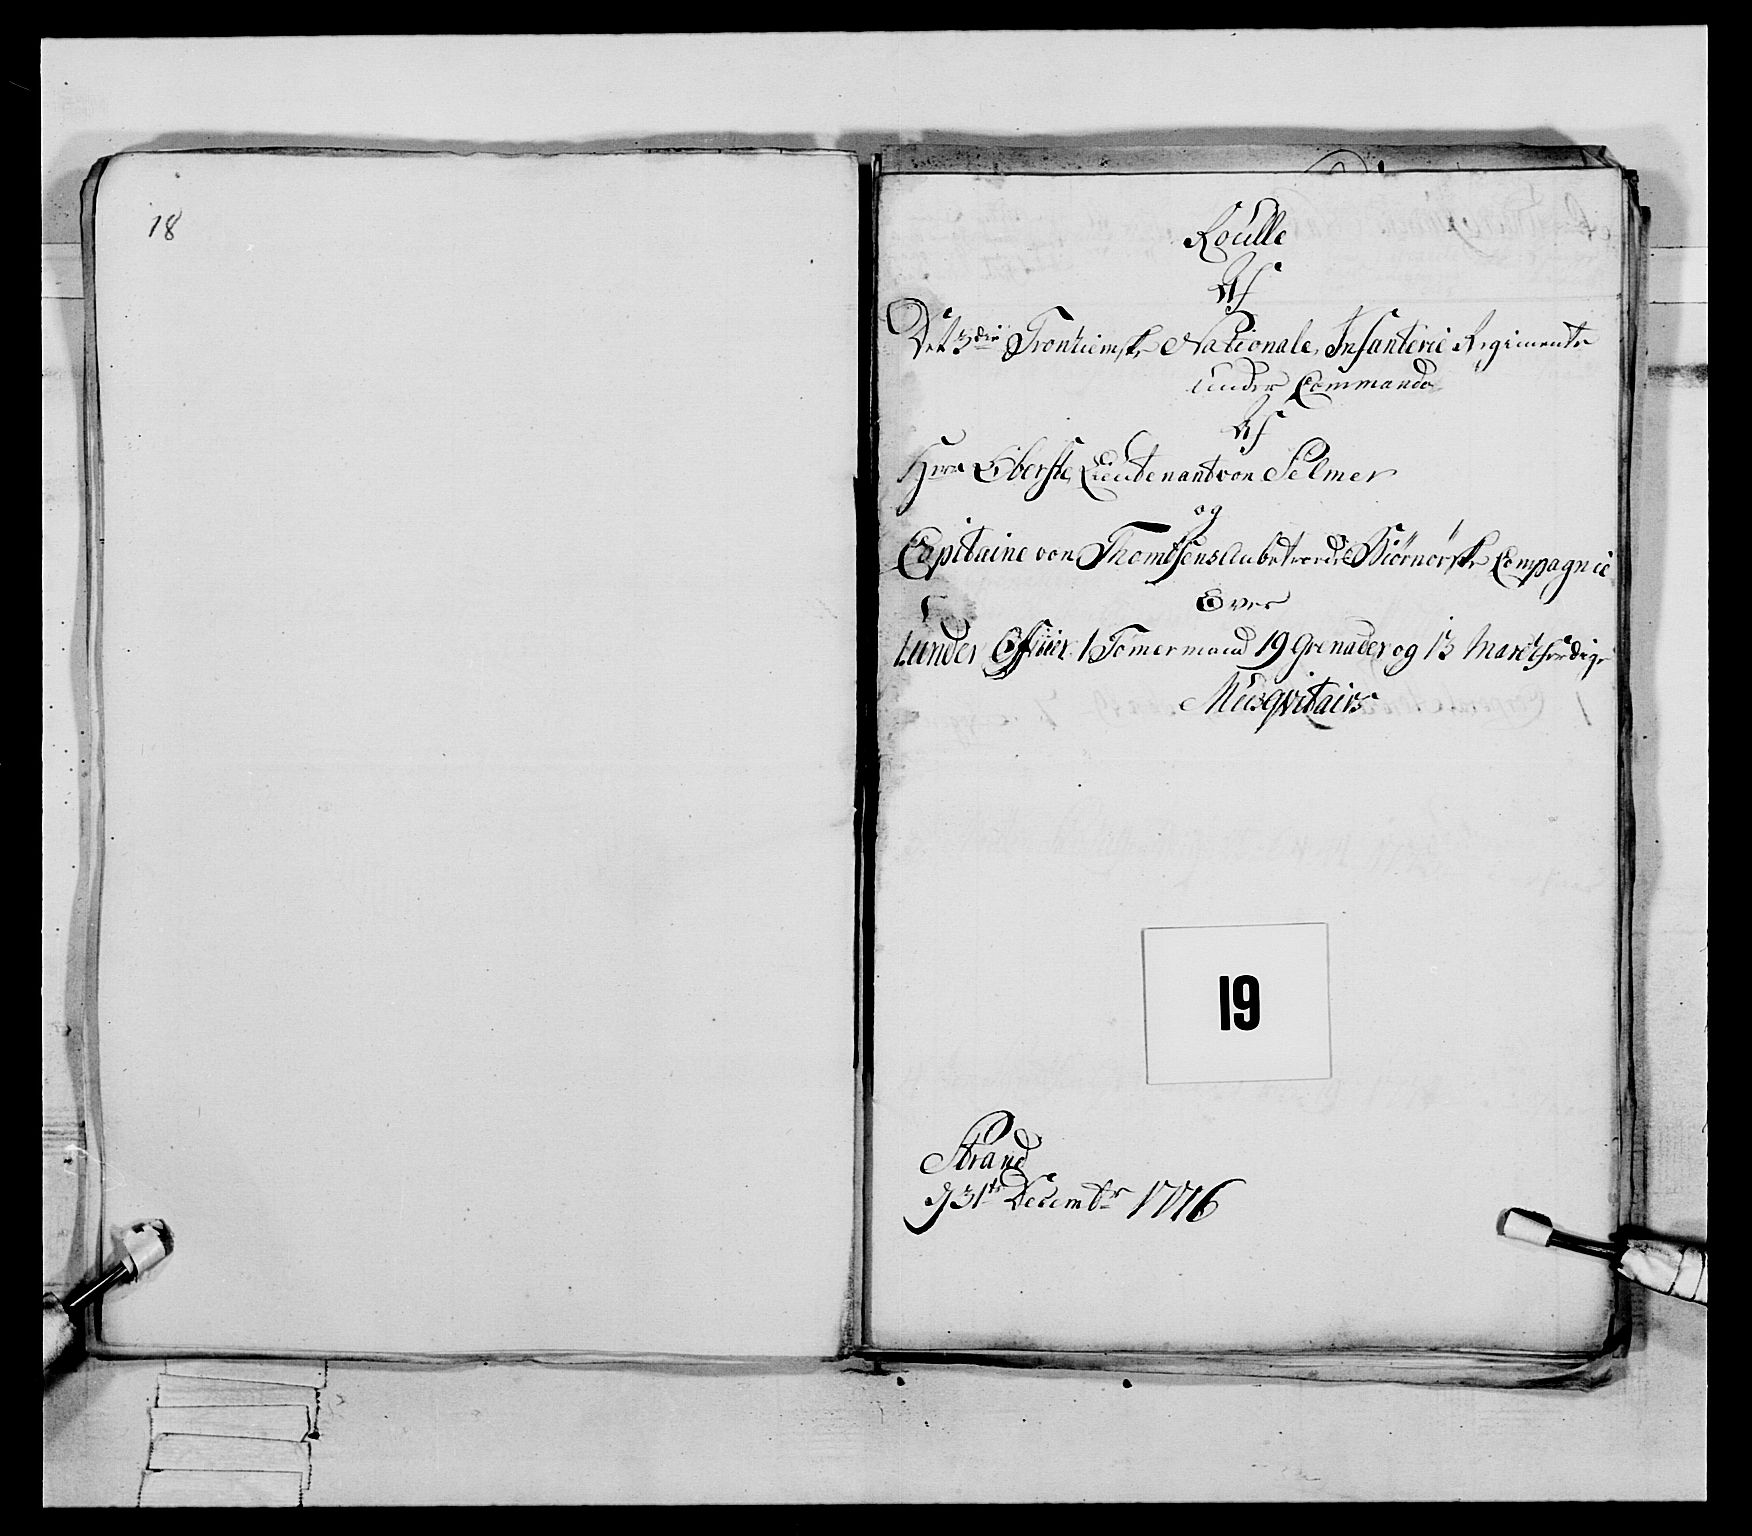 18
Roulle
Af
Det 3die Tronhiemske Nationale Infanterie Regimente
under Commando
Af
Herr Oberste Lieutenant von Selmer
og
Capitaine von Thomesens Anbetroede Biörnörske Compagnie
Over
1 under Officier 1 Tömermand 19 Grenader og 13 Marchfærdige
Musqvitairs
19
Strand
d 31te Decembr 1776